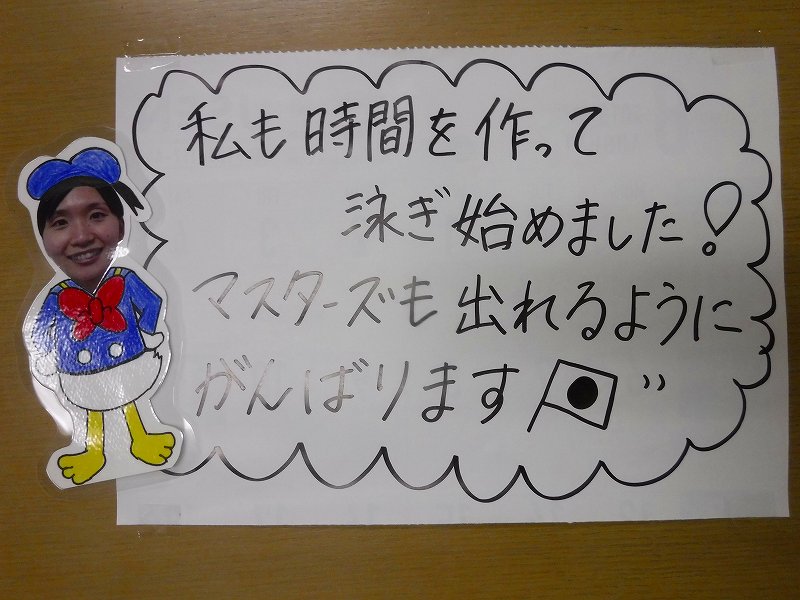 私も時間を作って
泳ぎ始めました!
マスターズも出れるように
がんばります